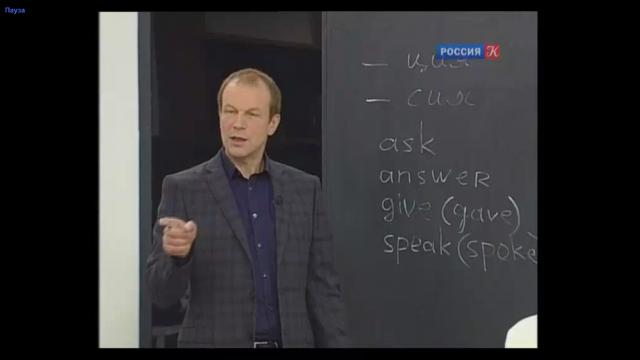 Пауза
РОССИЯ К
— ция
— сия
ask
answer
give (gave)
speak (spoke